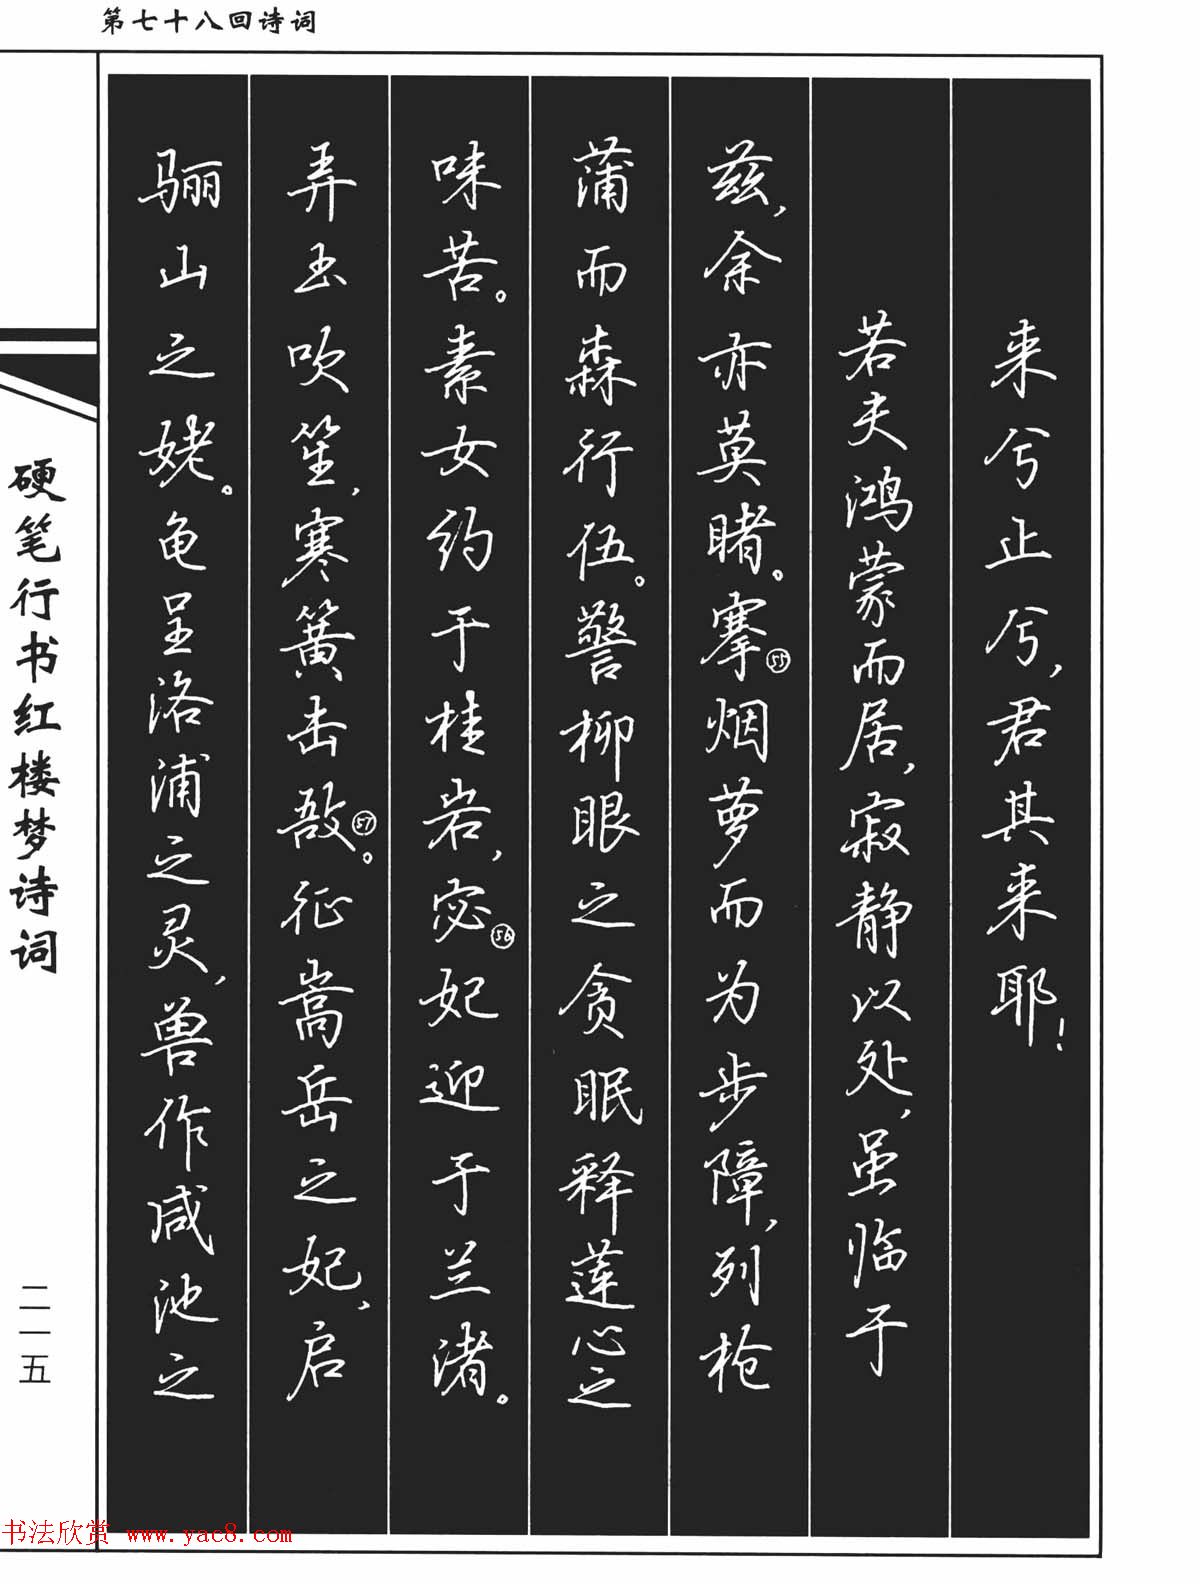 第七十八回诗词
来兮止兮，君其来耶！
若夫鸿蒙而居，寂静以处，虽临于
兹，余亦莫睹。搴㊺烟萝而为步障，列枪
蒲而森行伍。警柳眼之贪眠，释莲心之
味苦。素女约于桂岩，宓㊻妃迎于兰渚。
弄玉吹笙，寒簧击敔㊼。征嵩岳之妃，启
骊山之姥。龟呈洛浦之灵，兽作咸池之
硬笔行书红楼梦诗词
二一五
书法欣赏 www.yac8.com